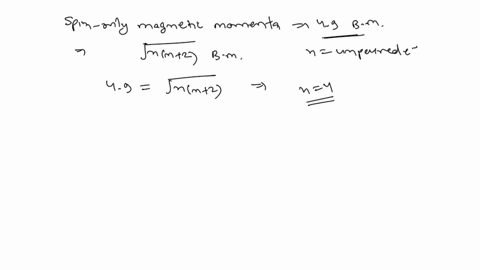 Spin-only magnetic momenta ⇒ 4.9 B.M.
⇒ √n(n+2) B.M. n = unpaired e-
4.9 = √n(n+2) ⇒ n=4